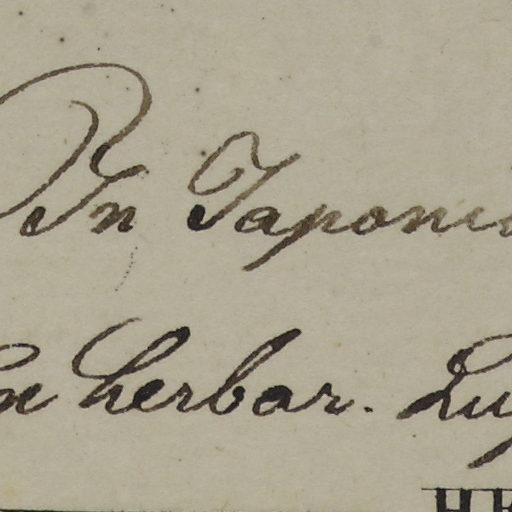 In Japoni
ex herbar. Lug
HE